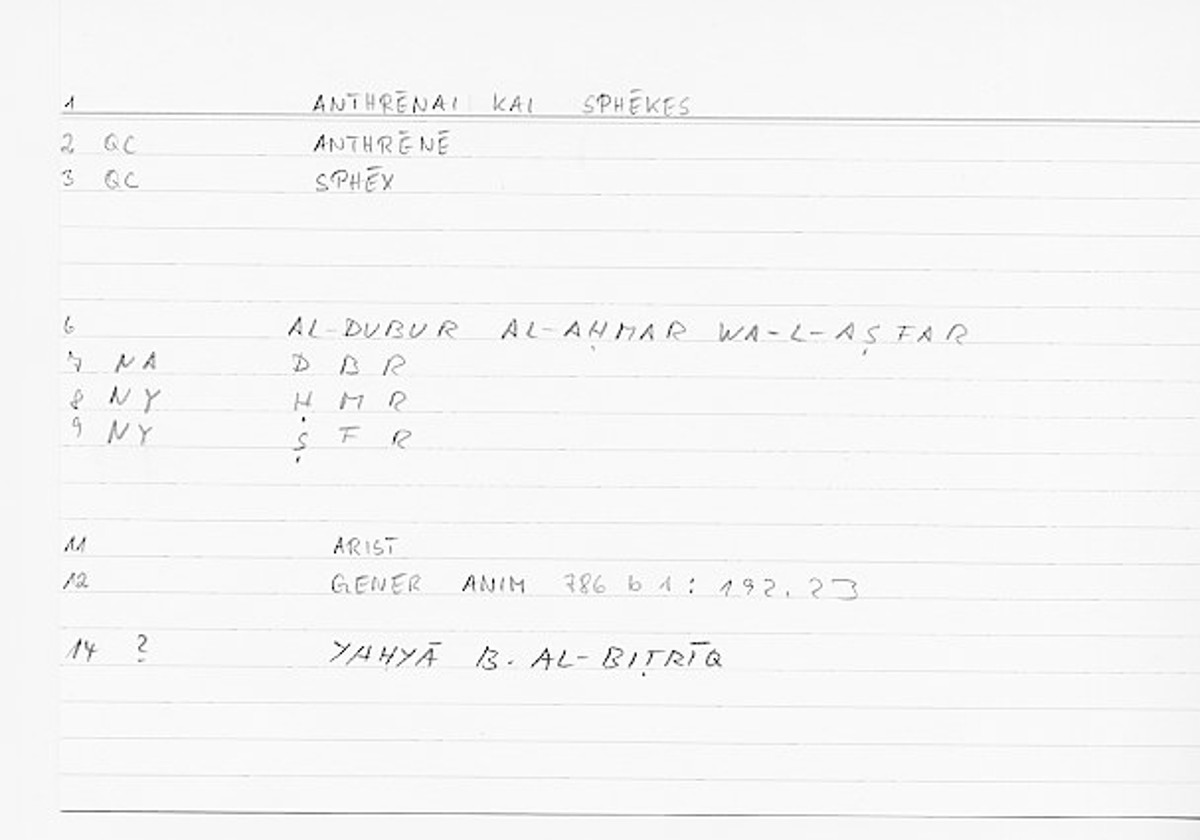 1 ANTHRĒNAI KAI SPHĒKES
2 QC ANTHRĒNĒ
3 QC SPHĒX
6 AL-DUBUR AL-AḤMAR WA-L-AṢFAR
7 NA D B R
8 NY Ḥ M R
9 NY Ṣ F R
11 ARIST
12 GENER ANIM 786 b 1 : 192.23
14 ? YAHYĀ B. AL-BIṬRĪQ